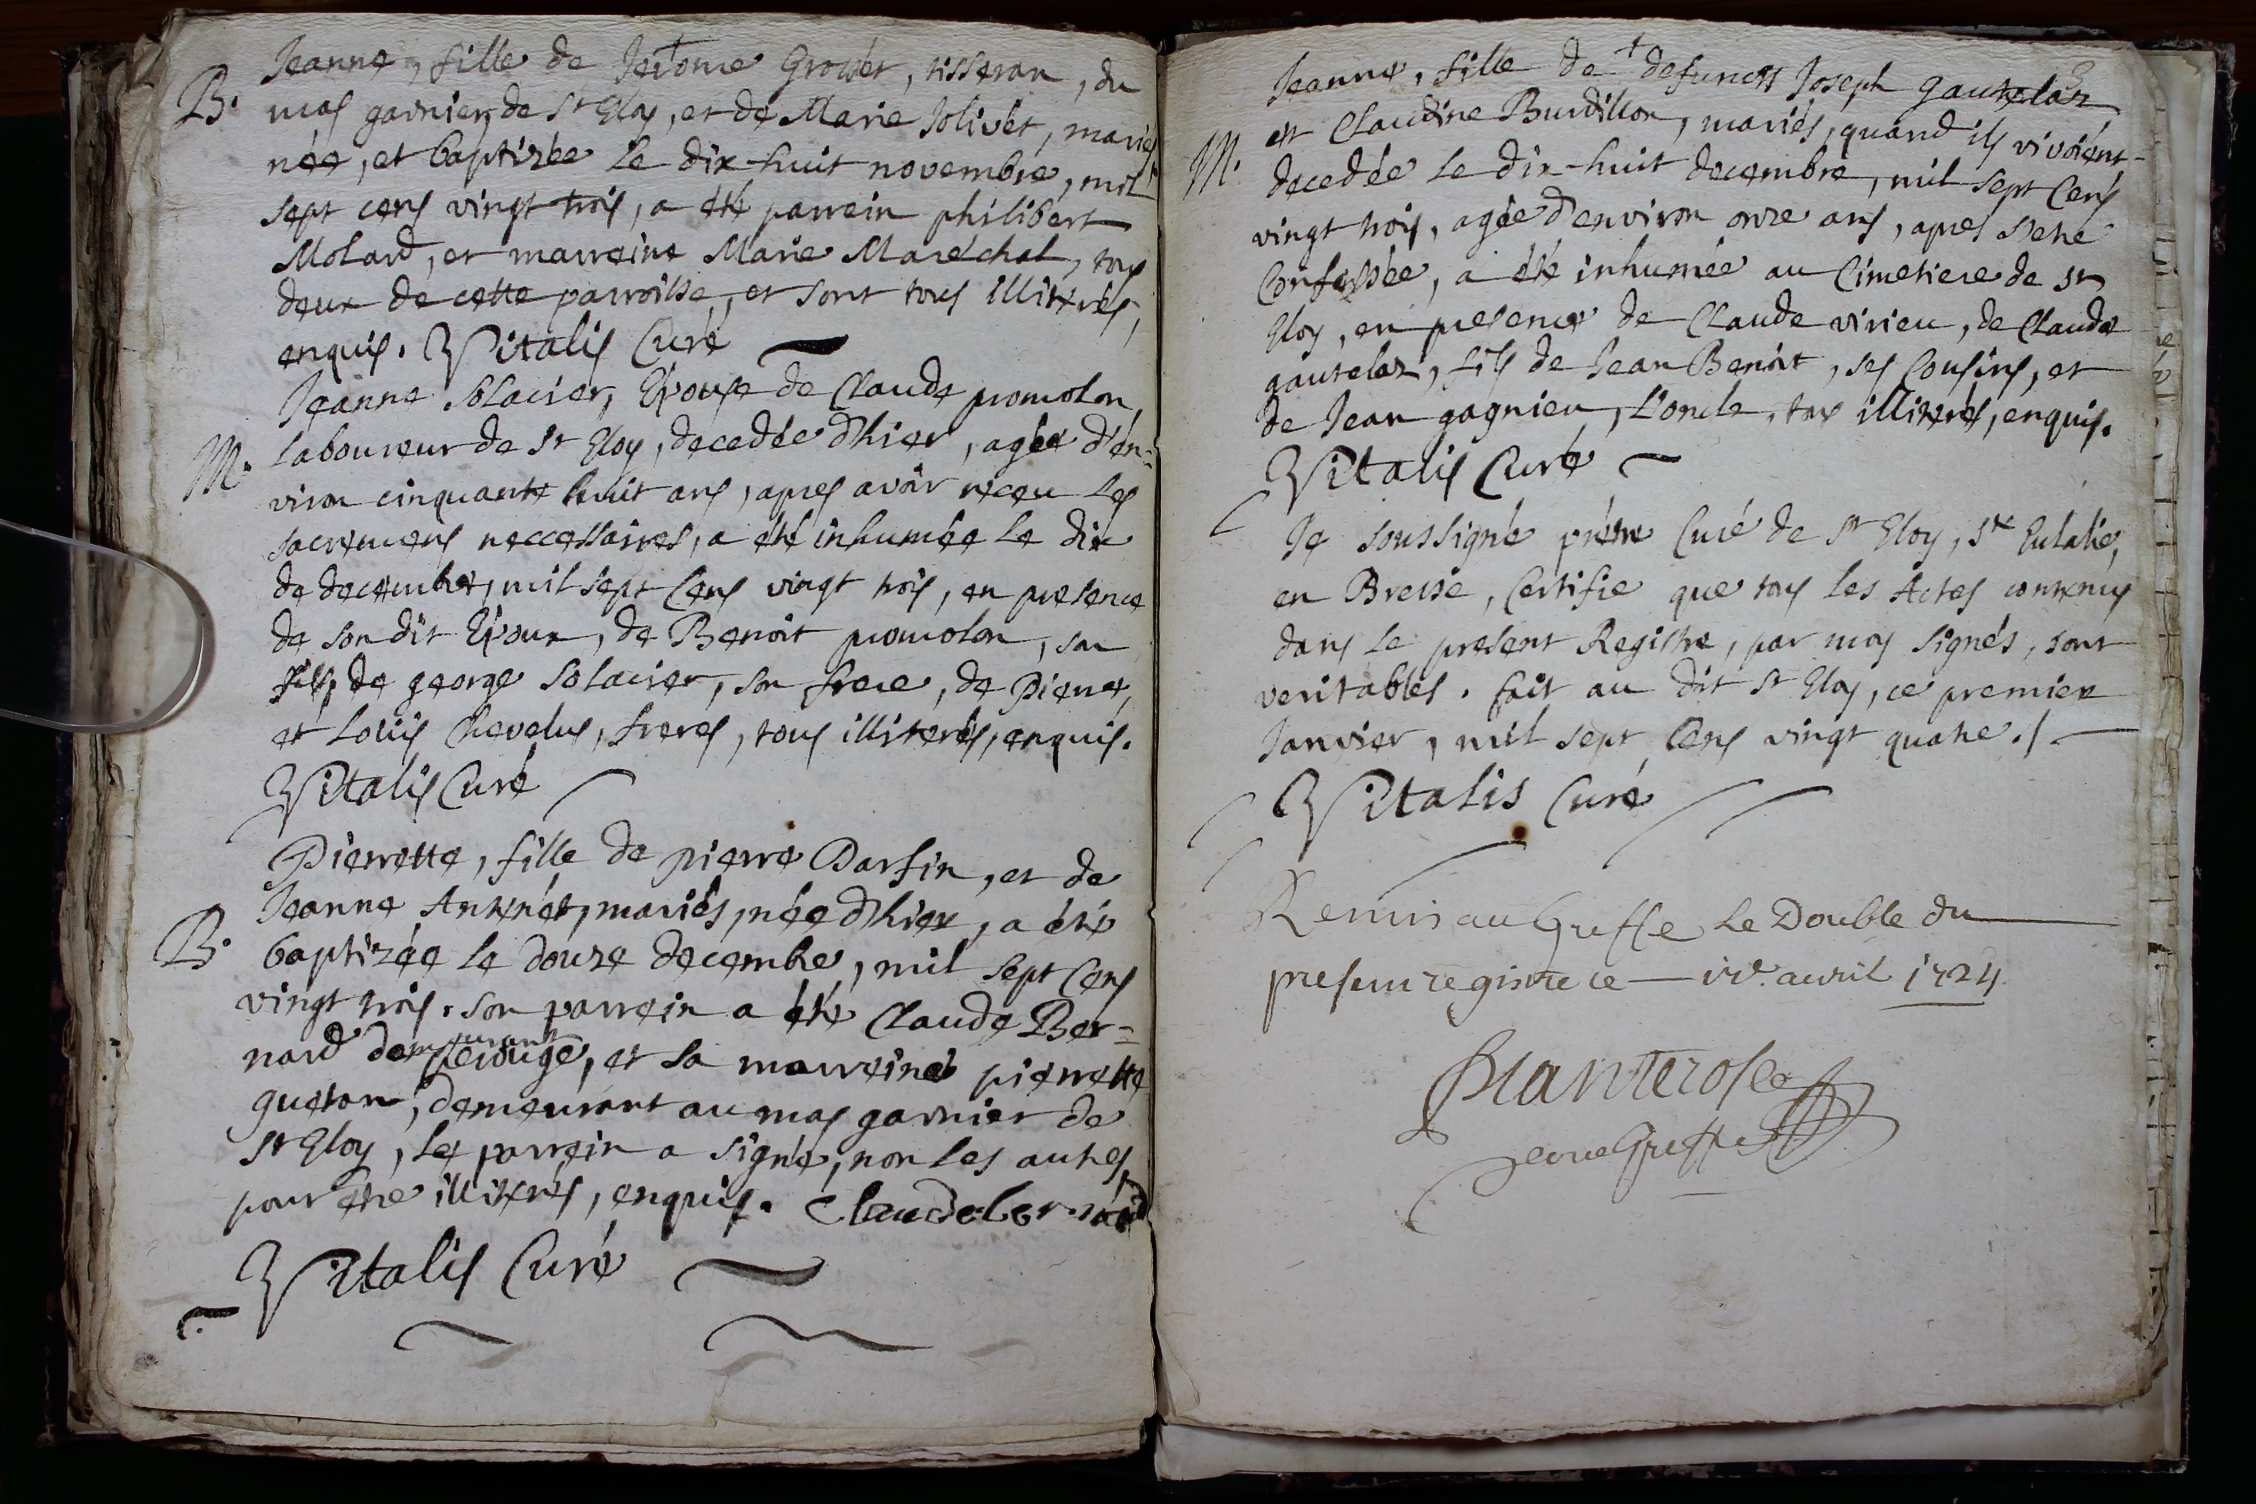 Jeanne, fille de Jerôme Grosset, tisseran, du
B. mas garnier de St Eloy, et de Marie Jolivet, mariés
née, et baptizée le dix-huit novembre, mil
sept cens vingt trois, a été parrein philibert
Molard, et marreine Marie Maréchal, tous
deux de cette parroisse, et sont tous illiterés,
enquis. Vitalis Curé
Jeanne Solacier, Epouse de Claude promolon,
M. Laboureur de St Eloy, decedée d'hier, agée d'en-
viron cinquante huit ans, apres avoir receu les
sacremens neccessaires, a été inhumée le dix
de decembre, mil sept Cens vingt trois, en presence
de son dit Epoux, de Benoit promolon, son
fils, de george Solacier, son frere, de Pierre,
et Loüis Chevelus, freres, tous illiterés, enquis.
Vitalis Curé
Pierrette, fille de pierre Darfin, et de
Jeanne Antenet, mariés, née d'hier, a été
B. baptizée le douze decembre, mil sept Cens
vingt trois. son parrein a été Claude Ber-
nard demeurant perouge, et sa marreine pierrette
gueton, demeurant au mas garnier de
St Eloy, le parrein a signé, non les autres
pour etre illiterés, enquis. Claude bernard
Vitalis Curé
Jeanne, fille de defuncts Joseph gautelaz
et Claudine Burdillon, mariés, quand ils vivoient
M. decedée le dix-huit decembre, mil sept Cens
vingt trois, agée d'environ onze ans, apres s'etre
Confessée, a été inhumée au Cimetiere de st
Eloy, en presence de Claude virieu, de Claude
gautelaz, fils de Jean Benoit, ses Cousins, et
de Jean gagnieu, L'oncle, tous illiterés, enquis.
Vitalis Curé
Je soussigné prétre Curé de St Eloy, Ste Eulalie,
en Bresse, Certifie que tous les Actes contenus
dans le present Registre, par moy signés, sont
veritables. fait au dit St Eloy, ce premier
Janvier, mil sept Cens vingt quatre./.
Vitalis Curé
Remis au Greffe Le Double du
present registre ce avril 1724.